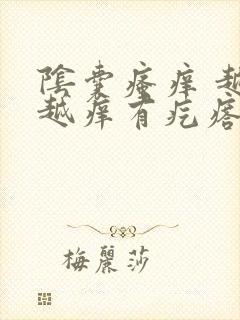 陰囊瘙痒 越
越痒有疙瘩
梅麗莎